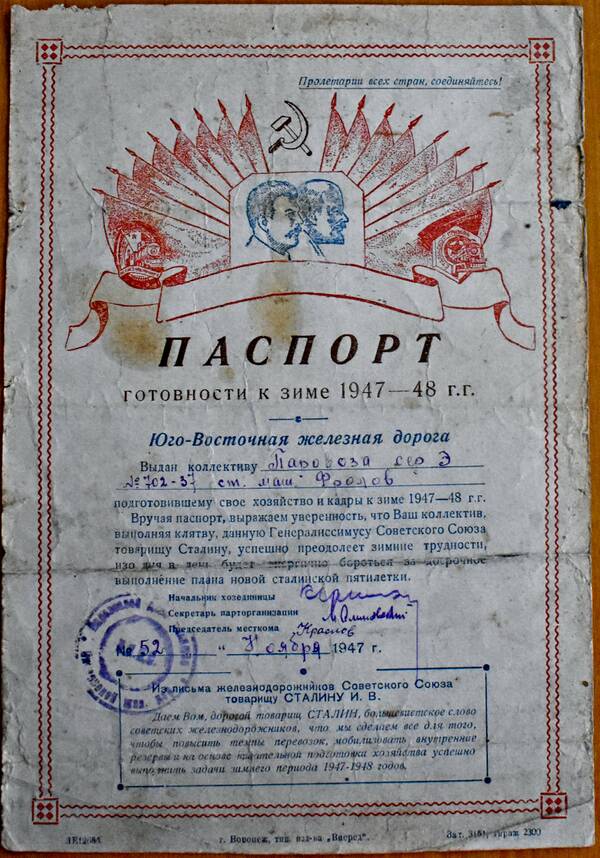 Пролетарии всех стран, соединяйтесь!
ПАСПОРТ
ГОТОВНОСТИ К ЗИМЕ 1947—48 г.г.
Юго-Восточная железная дорога
Выдан коллективу Паровоза сер Э
№ 702-37 ст. маш. Фролов
подготовившему свое хозяйство и кадры к зиме 1947—48 г.г.
Вручая паспорт, выражаем уверенность, что Ваш коллектив,
выполняя клятву, данную Генералиссимусу Советского Союза
товарищу Сталину, успешно преодолеет зимние трудности,
изо дня в день будет энергично бороться за досрочное
выполнение плана новой сталинской пятилетки.
Начальник хозединицы
Секретарь парторганизации
Председатель месткома Краснов
№ 52 " Ноября 1947 г.
Из письма железнодорожников Советского Союза
товарищу СТАЛИНУ И. В.
Даем Вам, дорогой товарищ СТАЛИН, большевистское слово
советских железнодорожников, что мы сделаем все для того,
чтобы повысить темпы перевозок, мобилизовать внутренние
резервы и на основе тщательной подготовки хозяйства успешно
выполнить задачи зимнего периода 1947-1948 годов.
г. Воронеж, тип. изд-ва „Вперед".
Зат. 3151, тираж 2300